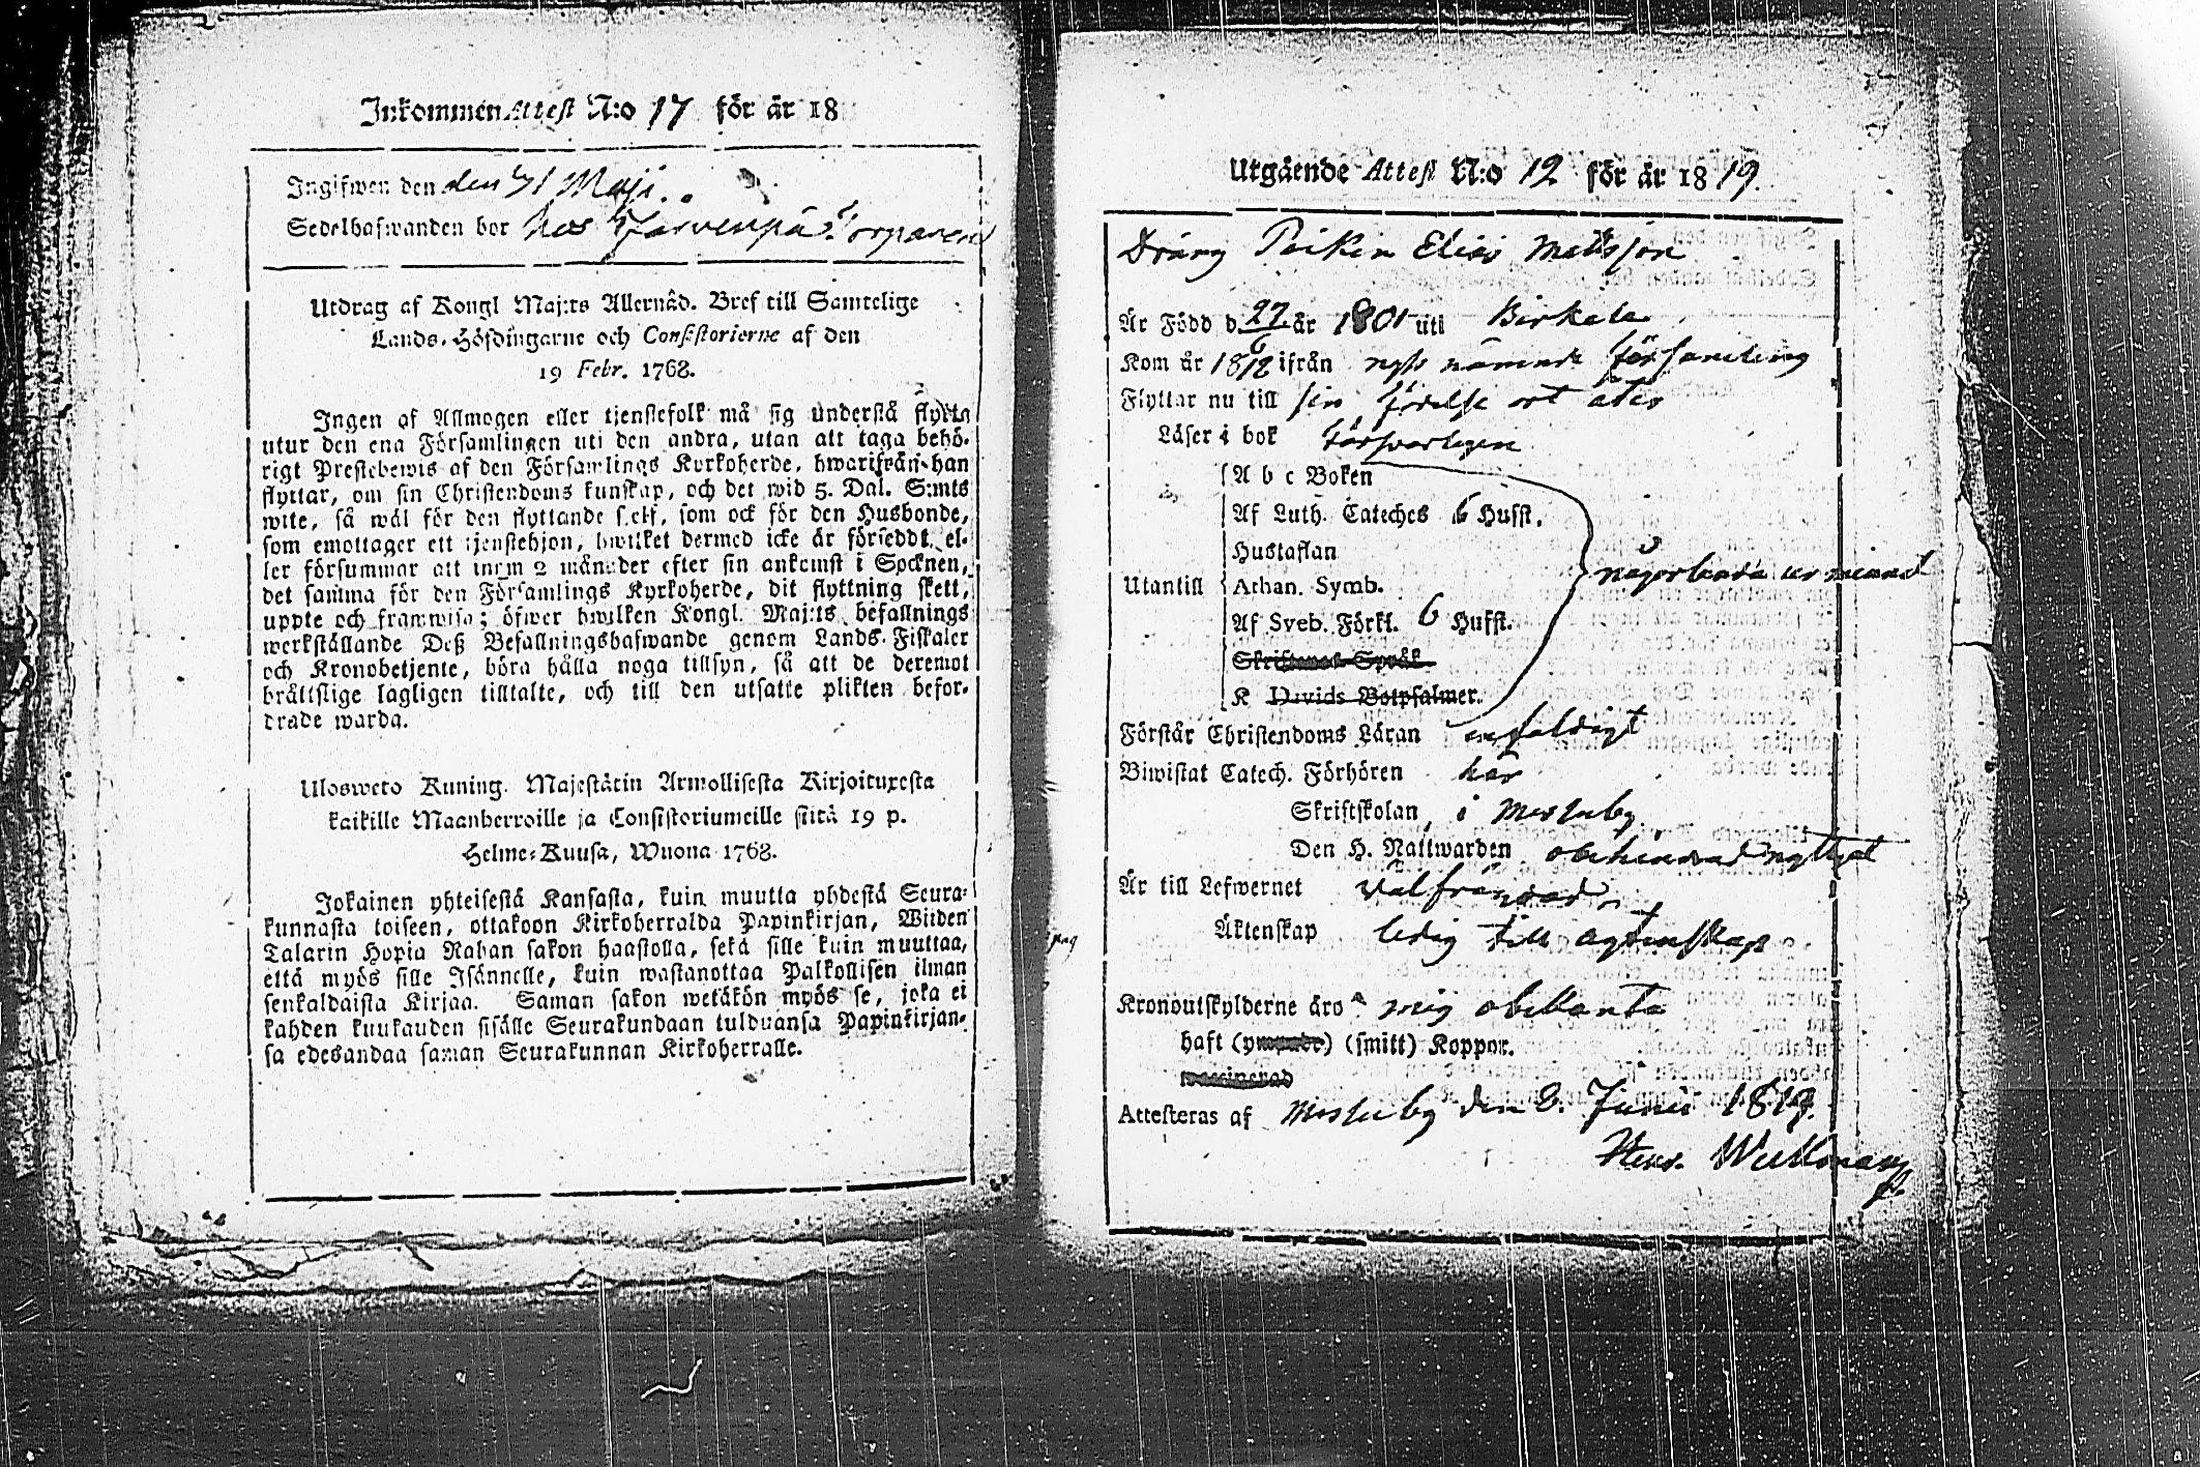 Inkommen Attest N:o 17 för år 18
Ingifwen den den 31 Maji.
Sedelhafwanden bor hos Järvenpä Torparen
Utdrag af Kongl Maj:ts Allernåd. Bref till Samtelige
Lands-Höfdingarne och Consistorierne af den
19 Febr. 1768.
Ingen af Allmogen eller tjenstefolk må sig understå flytta
utur den ena Församlingen uti den andra, utan att taga behö-
rigt Prestebewis af den Församlings Kyrkoherde, hwarifrån han
flyttar, om sin Christendoms kunskap, och det wid 5. Dal. S:mts
wite, så wäl för den flyttande self, som ock för den Husbonde,
som emottager ett tjenstehjon, hwilket dermed icke är försedt, el-
ler försummar att inom 2 månader efter sin ankomst i Socknen,
det samma för den Församlings Kyrkoherde, dit flyttning skett,
uppte och framwisa; öfwer hwilken Kongl. Maj:ts befallnings
werkställande Deß Befallningshafwande genom Lands-Fiskaler
och Kronobetjente, böra hålla noga tillsyn, så att de deremot
brättslige lagligen tilltalte, och till den utsatte plikten befor-
drade warda.
Ulosweto Kuning. Majestätin Armollisesta Kirjoituxesta
kaikille Maanherroille ja Consistoriumeille siitä 19 p.
Helme-Kuusa, Wuona 1768.
Jokainen yhteisestä Kansasta, kuin muutta yhdestä Seura-
kunnasta toiseen, ottakoon Kirkoherralda Papinkirjan, Wiiden
Talarin Hopia Rahan sakon haastolla, sekä sille kuin muuttaa,
että myös sille Isännelle, kuin wastanottaa Palkollisen ilman
senkaldaista Kirjaa. Saman sakon wetäkön myös se, joka ei
kahden kuukauden sisälle Seurakundaan tulduansa Papinkirjan-
sa edesandaa saman Seurakunnan Kirkoherralle.
Utgående Attest N:o 12 för år 1819.
Dräng Elias Mattsson
Är Född d. 27/6 år 1801 uti Birkala
Kom år 1812 ifrån nyss nämnde församling
Flyttar nu till sin födelse ort åter
Läser i bok försvarligen
A b c Boken
Af Luth. Cateches 6 Hufst.
Hustaflan
Utantill Athan. Symb. någorlunda
Af Sveb. Förkl. 6 Hufst.
Skriftenes Språk
K Davids Botpsalmer.
Förstår Christendoms Läran enfaldigt
Biwistat Catech. Förhören här
Skriftskolan i Messuby
Den H. Nattwarden obehindrad nyttjat
Är till Lefwernet välfrägdad
Äktenskap ledig till ägtenskap
Kronoutskylderne äro mig obekanta
haft (ympade) (smitt) Koppor.
vaccinerad
Attesteras af Messuby den 8. Junii 1819.